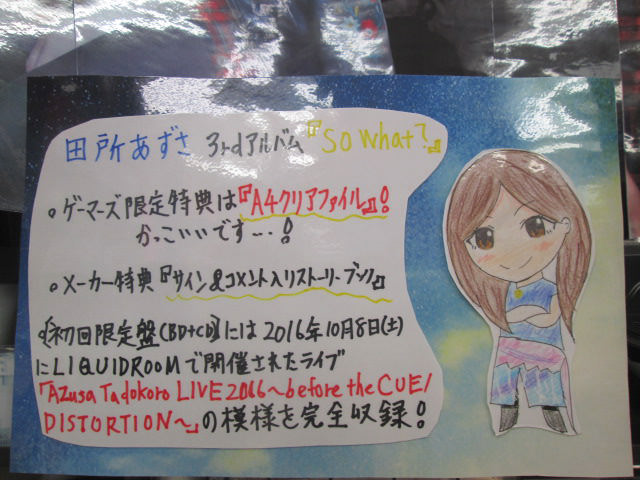 田所あずさ 3rdアルバム『So What?』
。ゲーマーズ限定特典は『A4クリアファイル』!
かっこいいです…!
。メーカー特典『サイン&コメント入りストーリーブック』
。《初回限定盤(BD+CD)》には2016年10月8日(土)
にLIQUIDROOMで開催されたライブ
『Azusa Tadokoro LIVE 2016～before the CUE/
DISTORTION～』の模様を完全収録!